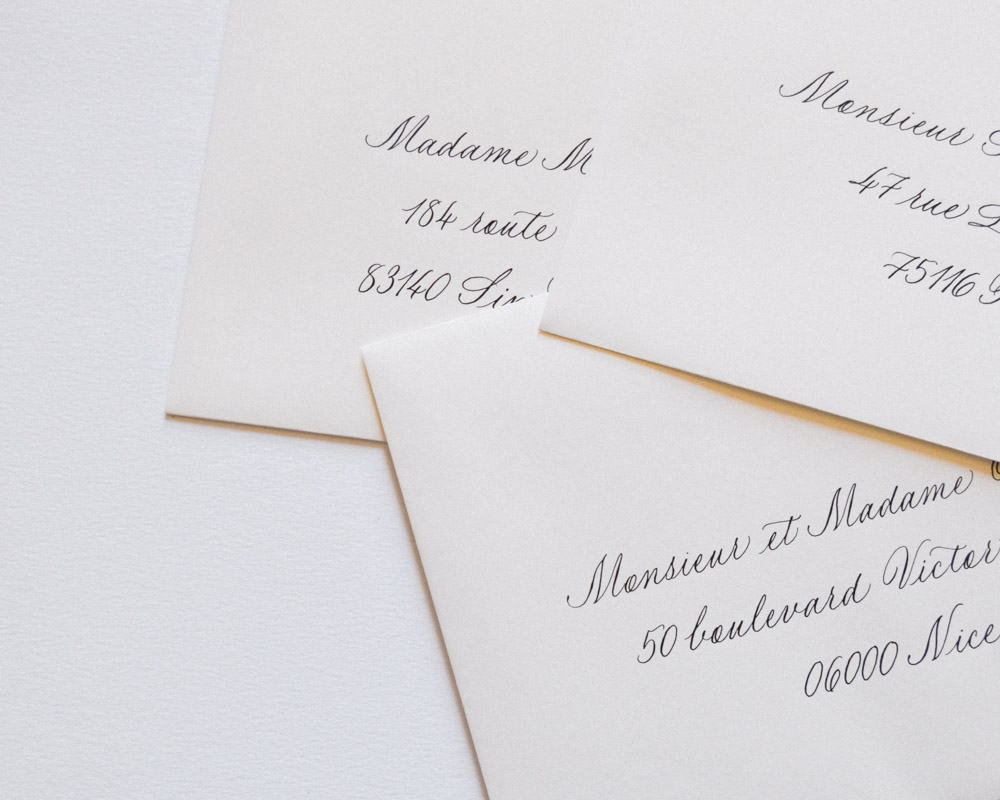 Madame M
184 route
83140
Monsieur
47 rue
75116
Monsieur et Madame
50 boulevard Victor
06000 Nice